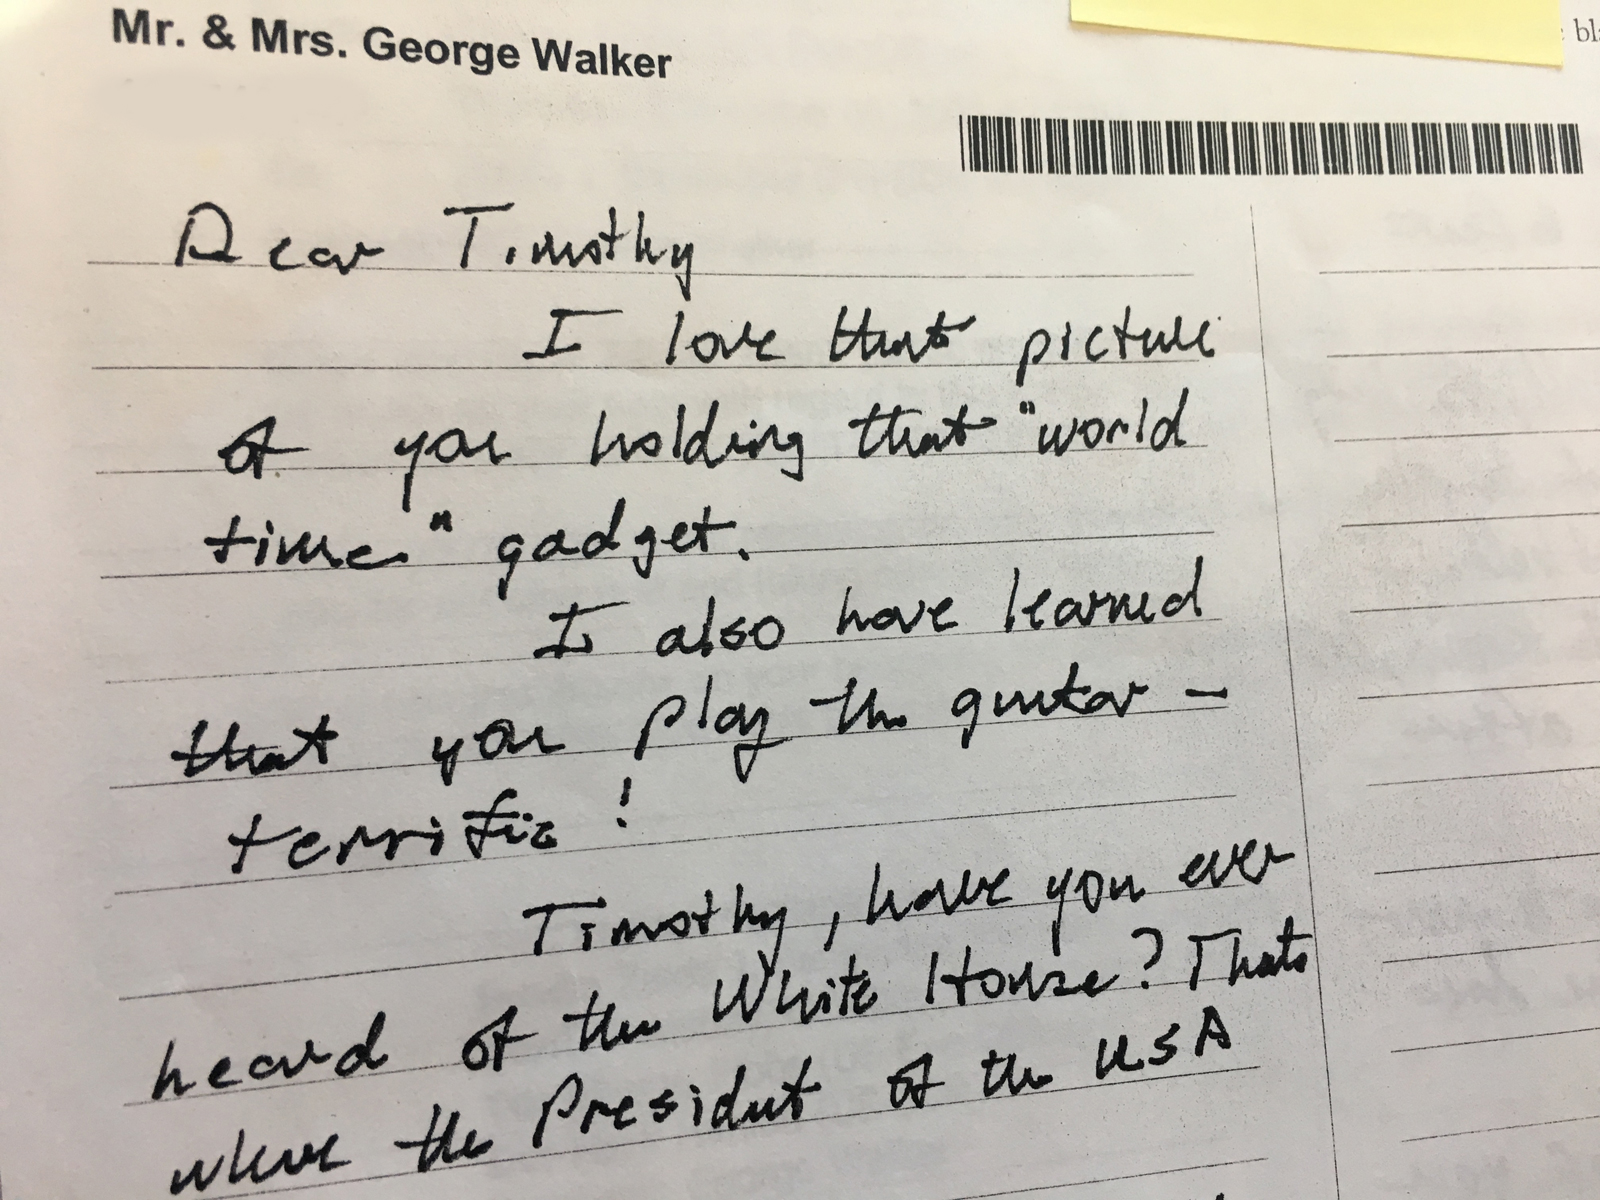 Mr. & Mrs. George Walker
bla
Dear Timothy
I love that picture
of you holding that "world
time" gadget.
I also have learned
that you play the guitar –
terrific!
Timothy, have you ever
heard of the White House? Thats
where the President of the USA